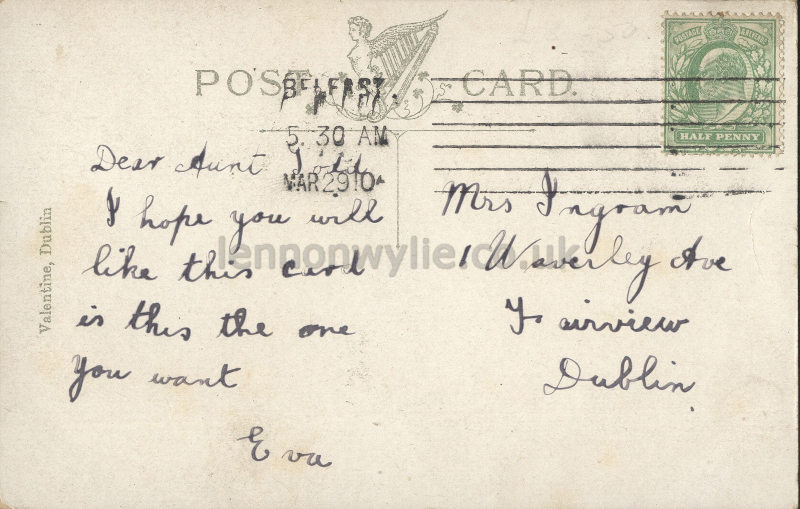 POST CARD.
BELFAST.
5. 30 AM
MAR 29 10
HALF PENNY
Dear Aunt
I hope you will
like this card
is this the one
you want
Eva
Mrs Ingram
1 Waverley Ave
Fairview
Dublin
Valentine, Dublin
lennonwylie.co.uk